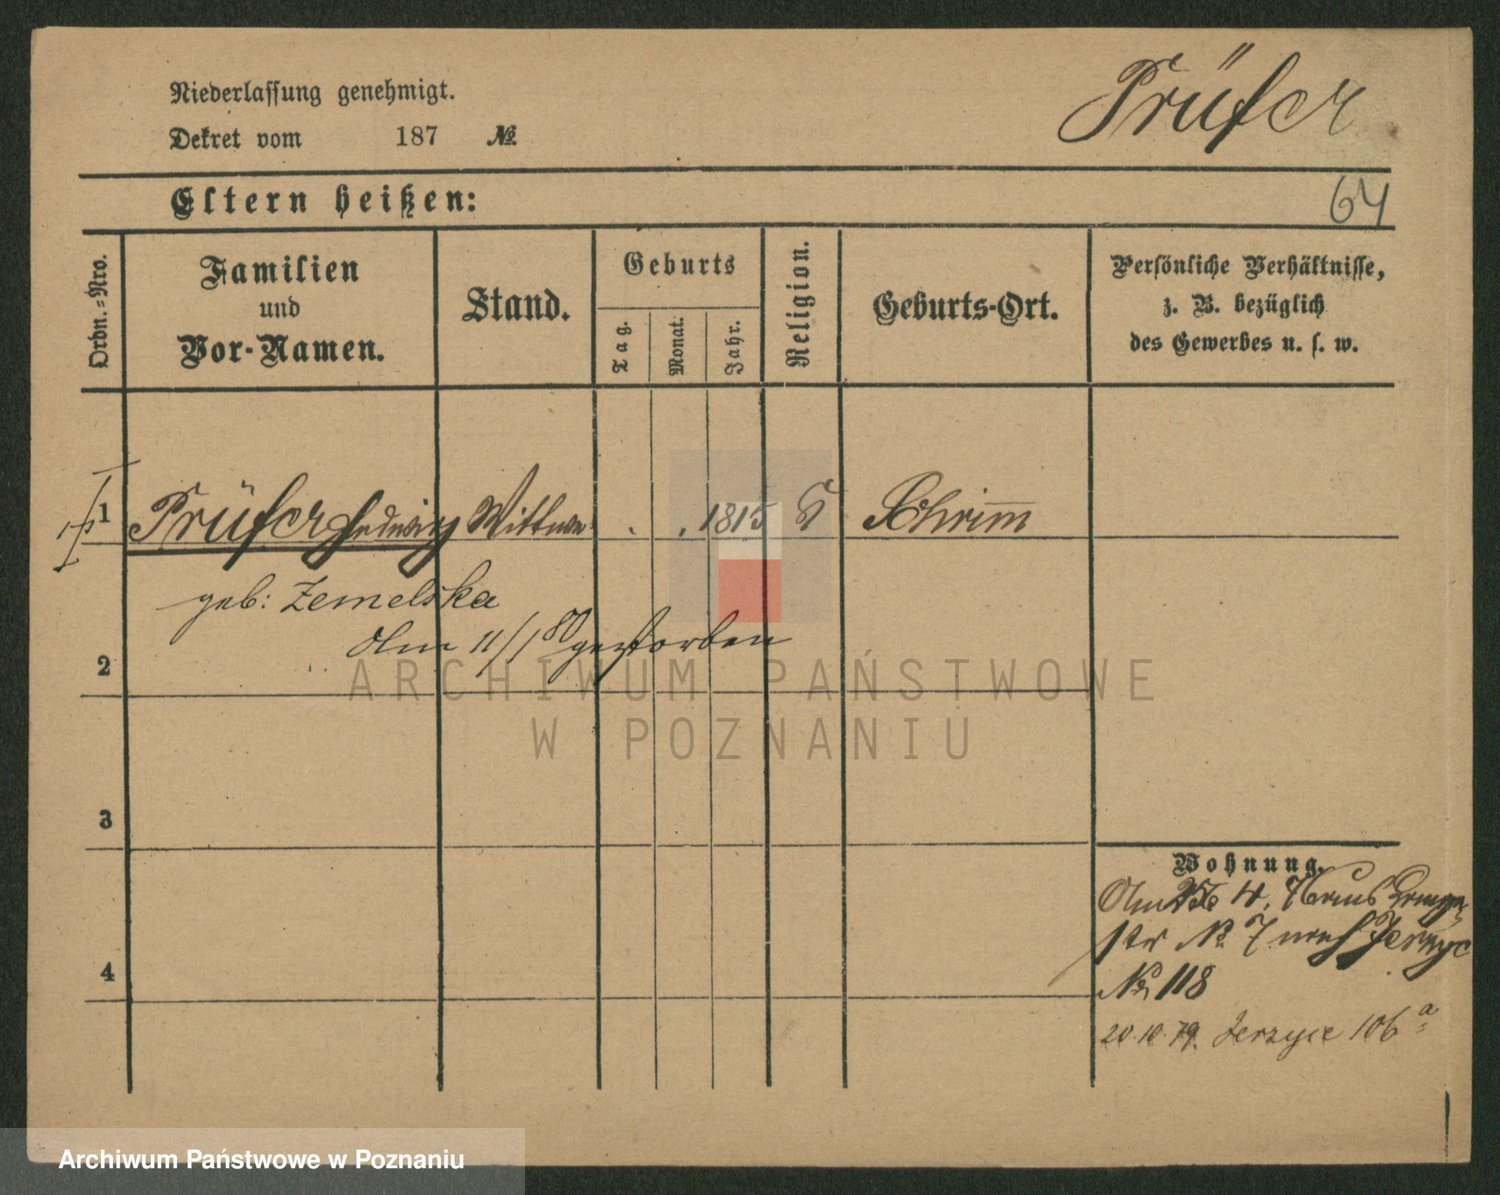 Niederlassung genehmigt.
Dekret vom 187 №
Prüfer
Eltern heißen:
64
Ordn.-Nro.
Familien und Vor-Namen.
Stand.
Geburts
Tag.
Monat.
Jahr.
Religion.
Geburts-Ort.
Persönliche Verhältnisse,
z. B. bezüglich
des Gewerbes u. s. w.
1 Prüfer Hedwig Wittwe . . 1815 Schrimm
geb: Zemelska
Am 11/1 80 gestorben
2
ARCHIWUM PAŃSTWOWE
W POZNANIU
3
Wohnung.
4.
str № 7 nach Jerzyce
4
№ 118
20.10.79. Jerzyce 106 a
Archiwum Państwowe w Poznaniu